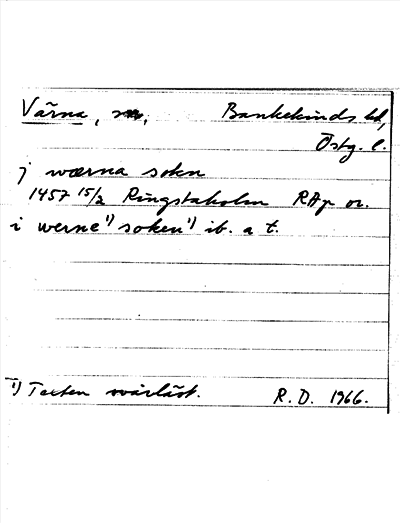 Värna, sn, Bankekinds hd,
Östg. l.
j wærna sokn
1457 15/2 Ringstaholm RAp or.
i werne¹⁾ soken¹⁾ ib. a t.
¹⁾ Texten svårläst. R. D. 1966.